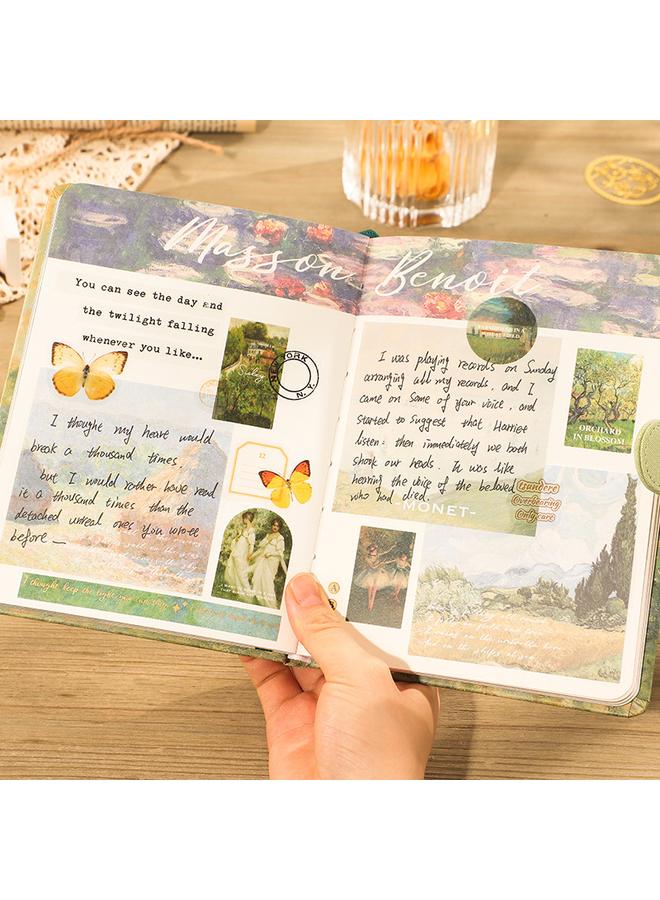 Masson Benoit
You can see the day and
the twilight falling
whenever you like...
NEW YORK
N.Y.
I thought my heart would
break a thousand times,
but I would rather have read
it a thousand times than the
detached unreal ones you wrote
before —
12
I thought keep the light you
I was playing records on Sunday
arranging all my records, and I
came on some of your voice, and
started to suggest that Harriet
listen: then immediately we both
shook our heads. It was like
hearing the voice of the beloved
who had died.
-MONET-
ORCHARD
IN BLOSSOM
Tsundere
Overbearing
Onlycare
A